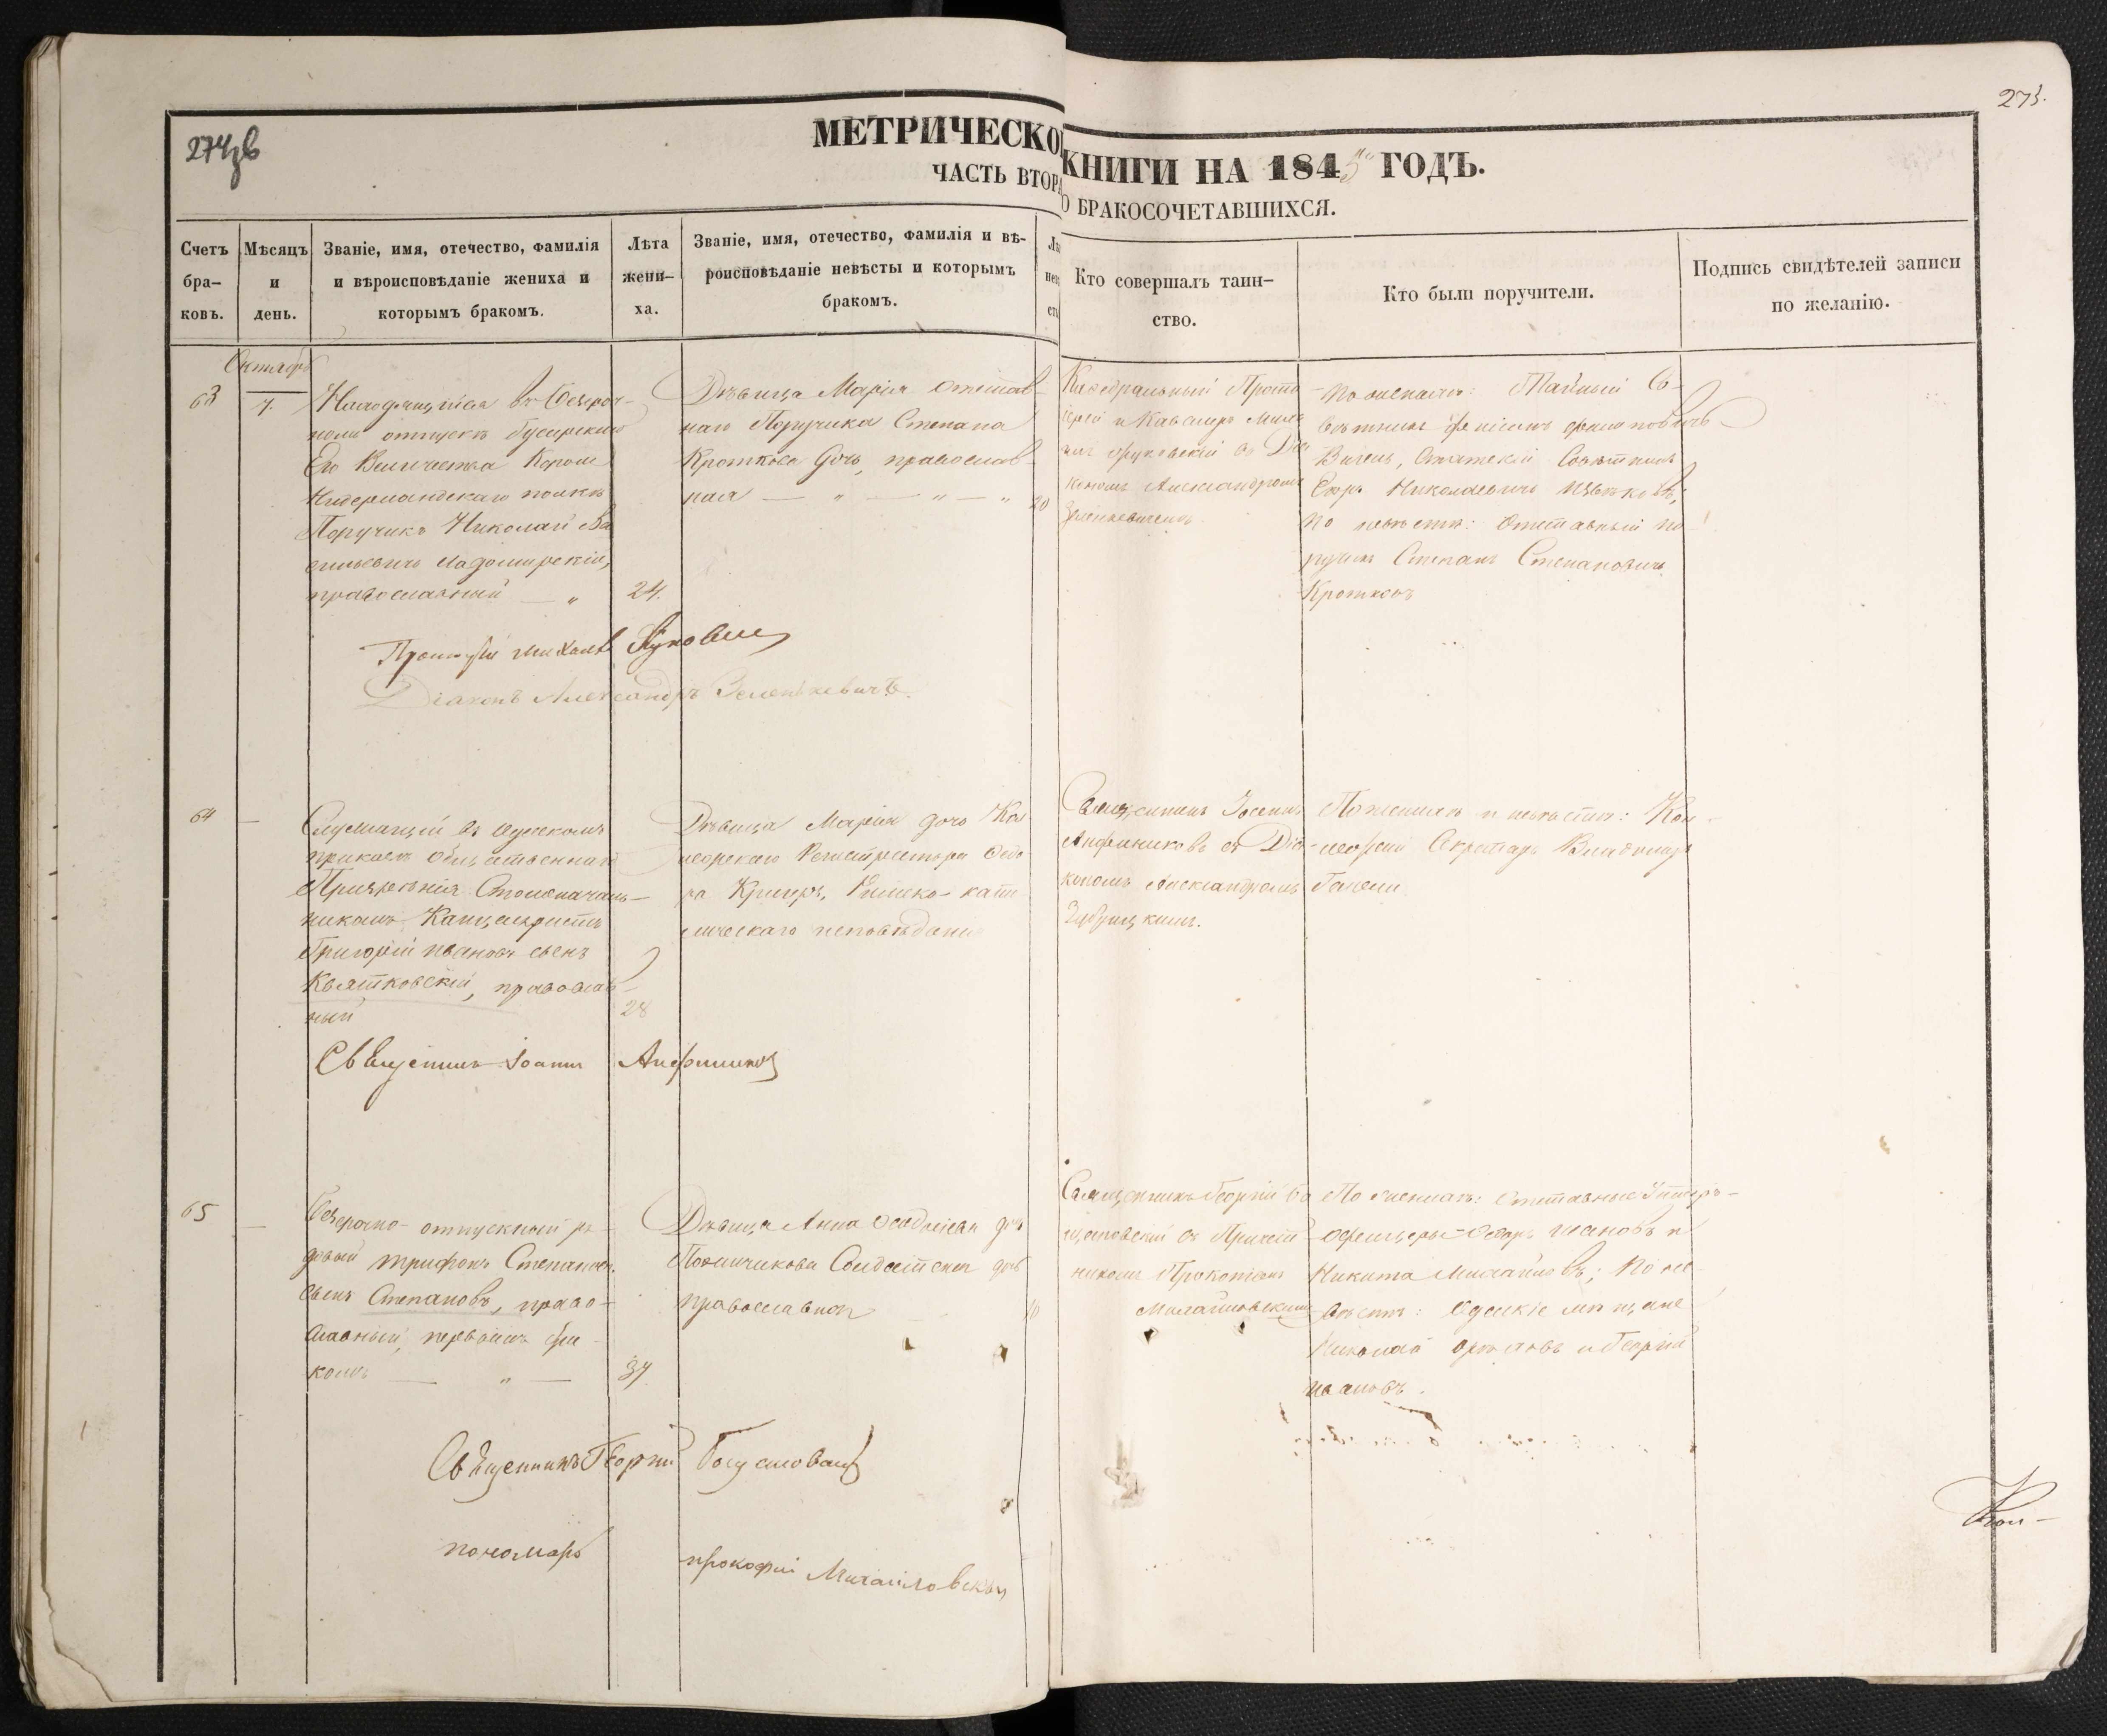 273.
МЕТРИЧЕСКО КНИГИ НА 1845 ГОДЪ.
ЧАСТЬ ВТОРА О БРАКОСОЧЕТАВШИХСЯ.
Счетъ бра-ковъ.
Мѣсяцъ и день.
Званіе, имя, отечество, фамилія и вѣроисповѣданіе жениха и которымъ бракомъ.
Лѣта жени-ха.
Званіе, имя, отечество, фамилія и вѣ-роисповѣданіе невѣсты и которымъ бракомъ.
Кто совершалъ таин-ство.
Кто были поручители.
Подпись свидѣтелей записи по желанію.
Октябрь
63
7.
Находящійся въ безсроч-
номъ отпускѣ Гусарскаго
Его Величества Короля
Нидерландскаго полка
Поручикъ Николай Ва
сильевичъ Ладомирскій,
православный — „
24.
Дѣвица Марія отстав-
наго Поручика Степана
Кроткова дочь, православ-
ная — „ — „ — „
20
Каѳедральный Прото
іерей и Кавалеръ Миха
съ Діа
кономъ Александромъ
Зеленкевичемъ
По женихѣ: Тайный Со-
вѣтникъ
Статскій Совѣтникъ
Егоръ Николаевичъ
по невѣстѣ: Отставный По
ручикъ Степанъ Степановичъ
Кротковъ
Протоіерей Михаилъ
Діаконъ Александръ Зеленкевичъ.
64
—
Служащій въ Одесскомъ
приказѣ общественнаго
Призрѣнія Столоначаль-
никомъ Канцеляристъ
Григорій Ивановъ сынъ
Квятковскій, православ-
ный
28
Дѣвица Марія дочь Кол
лежскаго Регистратора Ѳедо
ра Римско-като
лическаго исповѣданія
Священникъ Іоаннъ
Анфиниковъ съ Діа-
кономъ Александромъ
По женихѣ и невѣстѣ: Кол-
лежскій Секретарь Владимиръ
Священникъ Іоаннъ Анфиниковъ
65
—
Безсрочно-отпускный ря-
довый Трифонъ Степановъ
сынъ Степановъ, право-
славный, первымъ бра-
комъ — „ —
37
Дѣвица Анна дочь
Солдатская дочь
православная
Священникъ Георгій
съ Причет
никомъ Прокопіемъ
Михайловскимъ
По женихѣ: Отставные Унтеръ-
офицеры Ѳедоръ Ивановъ и
Никита Михайловъ; По не-
вѣстѣ: Одесскіе мѣщане
Николай и Георгій
Ивановъ.
Священникъ Георгій
пономарь Прокофій Михайловскій
Кол-